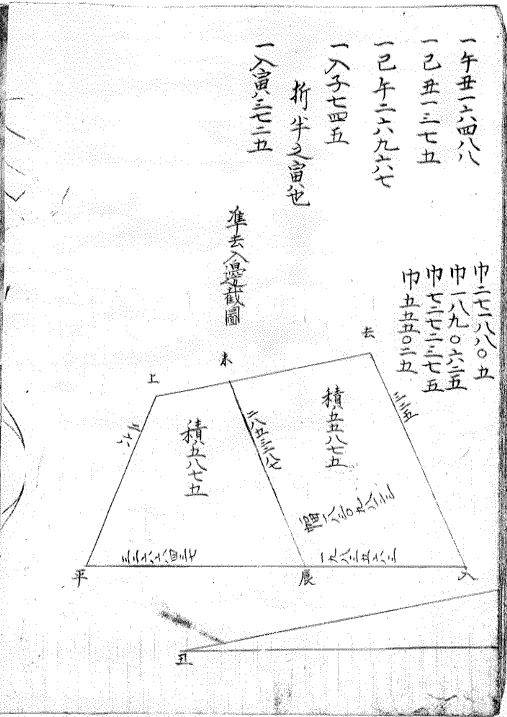 一午丑一六四八八
一己丑一三七五
一己午二六九六七
一入子七四五
折半之寅也
一入寅三七二五
巾二七一八八〇五
巾一八九〇六二五
巾七二七二三七五
巾五五五〇二五
準去入邊截圖
去
未
上
三三五
積五五八七五
二八五三八七
積五八七五
二六
平
辰
入
丑